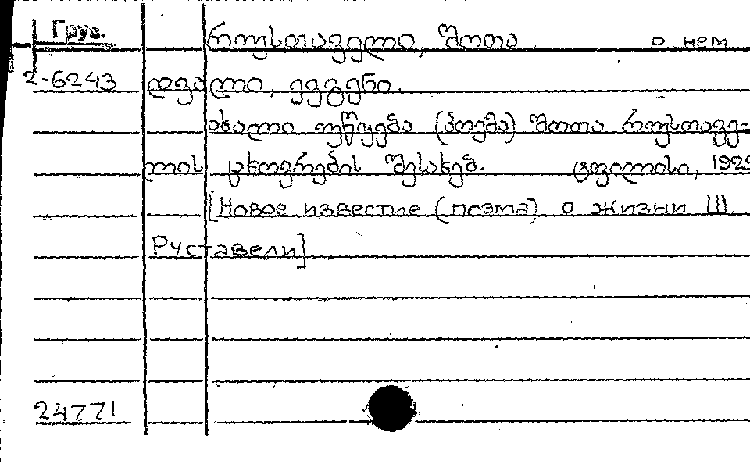 Груз.
რუსთაველი, შოთა о нем
2-6243 დვალი, ევგენი.
ახალი უწყება (პოემა) შოთა რუსთავე-
ლის ცხოვრების შესახებ. ტფილისი, 1929
[Новое известие (поэма) о жизни Ш
Руставели]
24771